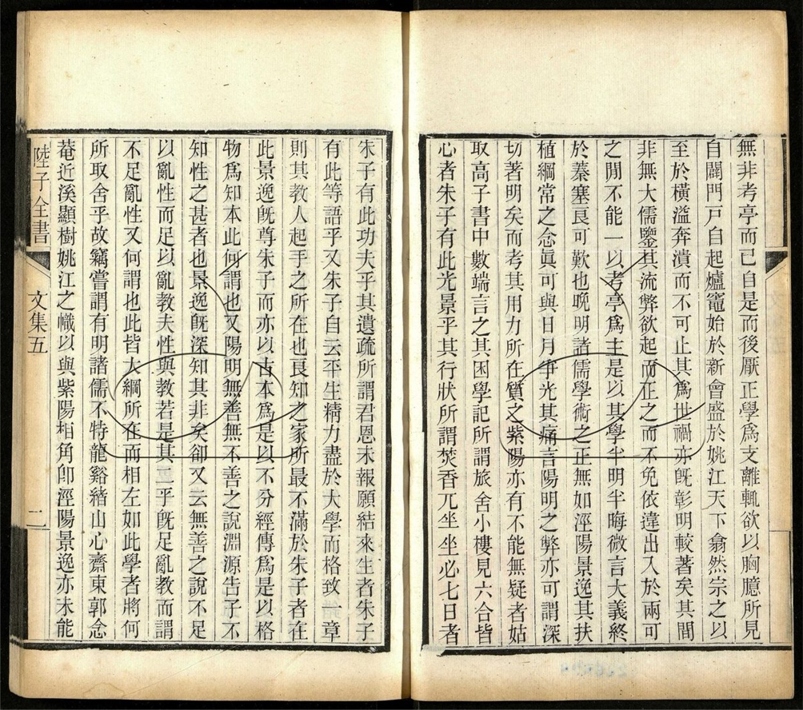 無非考亭而已自是而後厭正學爲支離輒欲以胸臆所見
自闢門戸自起爐竈始於新會盛於姚江天下翕然宗之以
至於橫溢奔潰而不可止其爲世禍亦旣彰明較著矣其間
非無大儒鑒其流弊欲起而正之而不免依違出入於兩可
之閒不能一以考亭爲主是以其學半明半晦微言大義終
於蓁塞良可歎也晚明諸儒學術之正無如涇陽景逸其扶
植綱常之念眞可與日月爭光其痛言陽明之弊亦可謂深
切著明矣而考其用力所在質之紫陽亦有不能無疑者姑
取高子書中數端言之其困學記所謂旅舍小樓見六合皆
心者朱子有此光景乎其行狀所謂焚香兀坐坐必七日者
朱子有此功夫乎其遺疏所謂君恩未報願結來生者朱子
有此等語乎又朱子自云平生精力盡於大學而格致一章
則其敎人起手之所在也良知之家所最不滿於朱子者在
此景逸旣尊朱子而亦以古本爲是以不分經傳爲是以格
物爲知本此何謂也又陽明無善無不善之說淵源告子不
知性之甚者也景逸旣深知其非矣卻又云無善之說不足
以亂性而足以亂敎夫性與敎若是其二乎旣足亂敎而謂
不足亂性又何謂也此皆大綱所在而相左如此學者將何
所取舍乎故竊嘗謂有明諸儒不特龍谿緒山心齋東郭念
菴近溪顯樹姚江之幟以與紫陽相角卽涇陽景逸亦未能
陸子全書
文集五
二